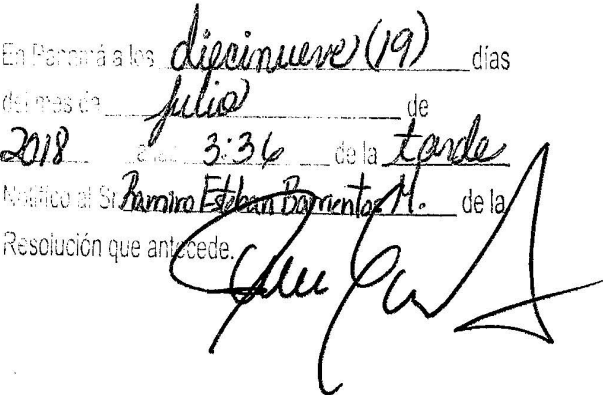 En Panamá a los diecinueve (19) días
del mes de julio de
2018 a las 3:36 de la tarde
Notifico al Sr. Ramiro Esteban Barrientos M. de la
Resolución que antecede.